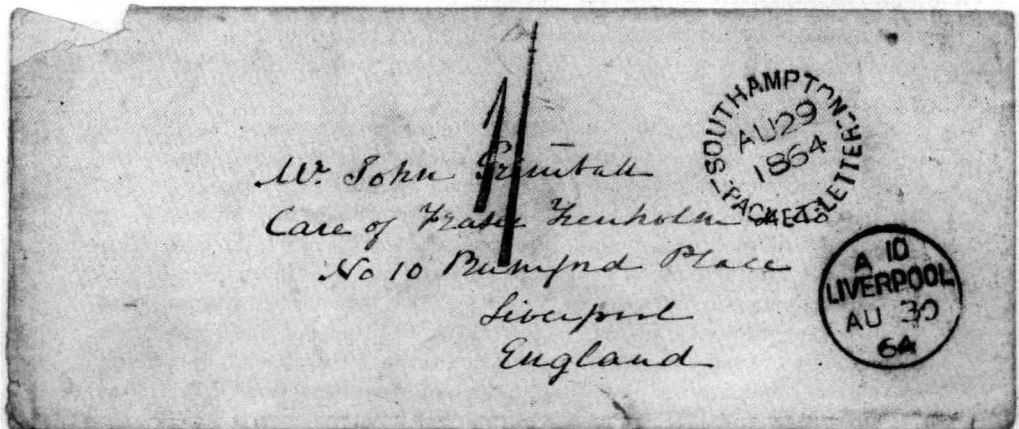 1/
SOUTHAMPTON
PACKET-LETTER
AU 29
1864
Mr. John Grimball
Care of Fraser Trenholm & Co
No 10 Rumford Place
Liverpool
England
A 10
LIVERPOOL
AU 30
64